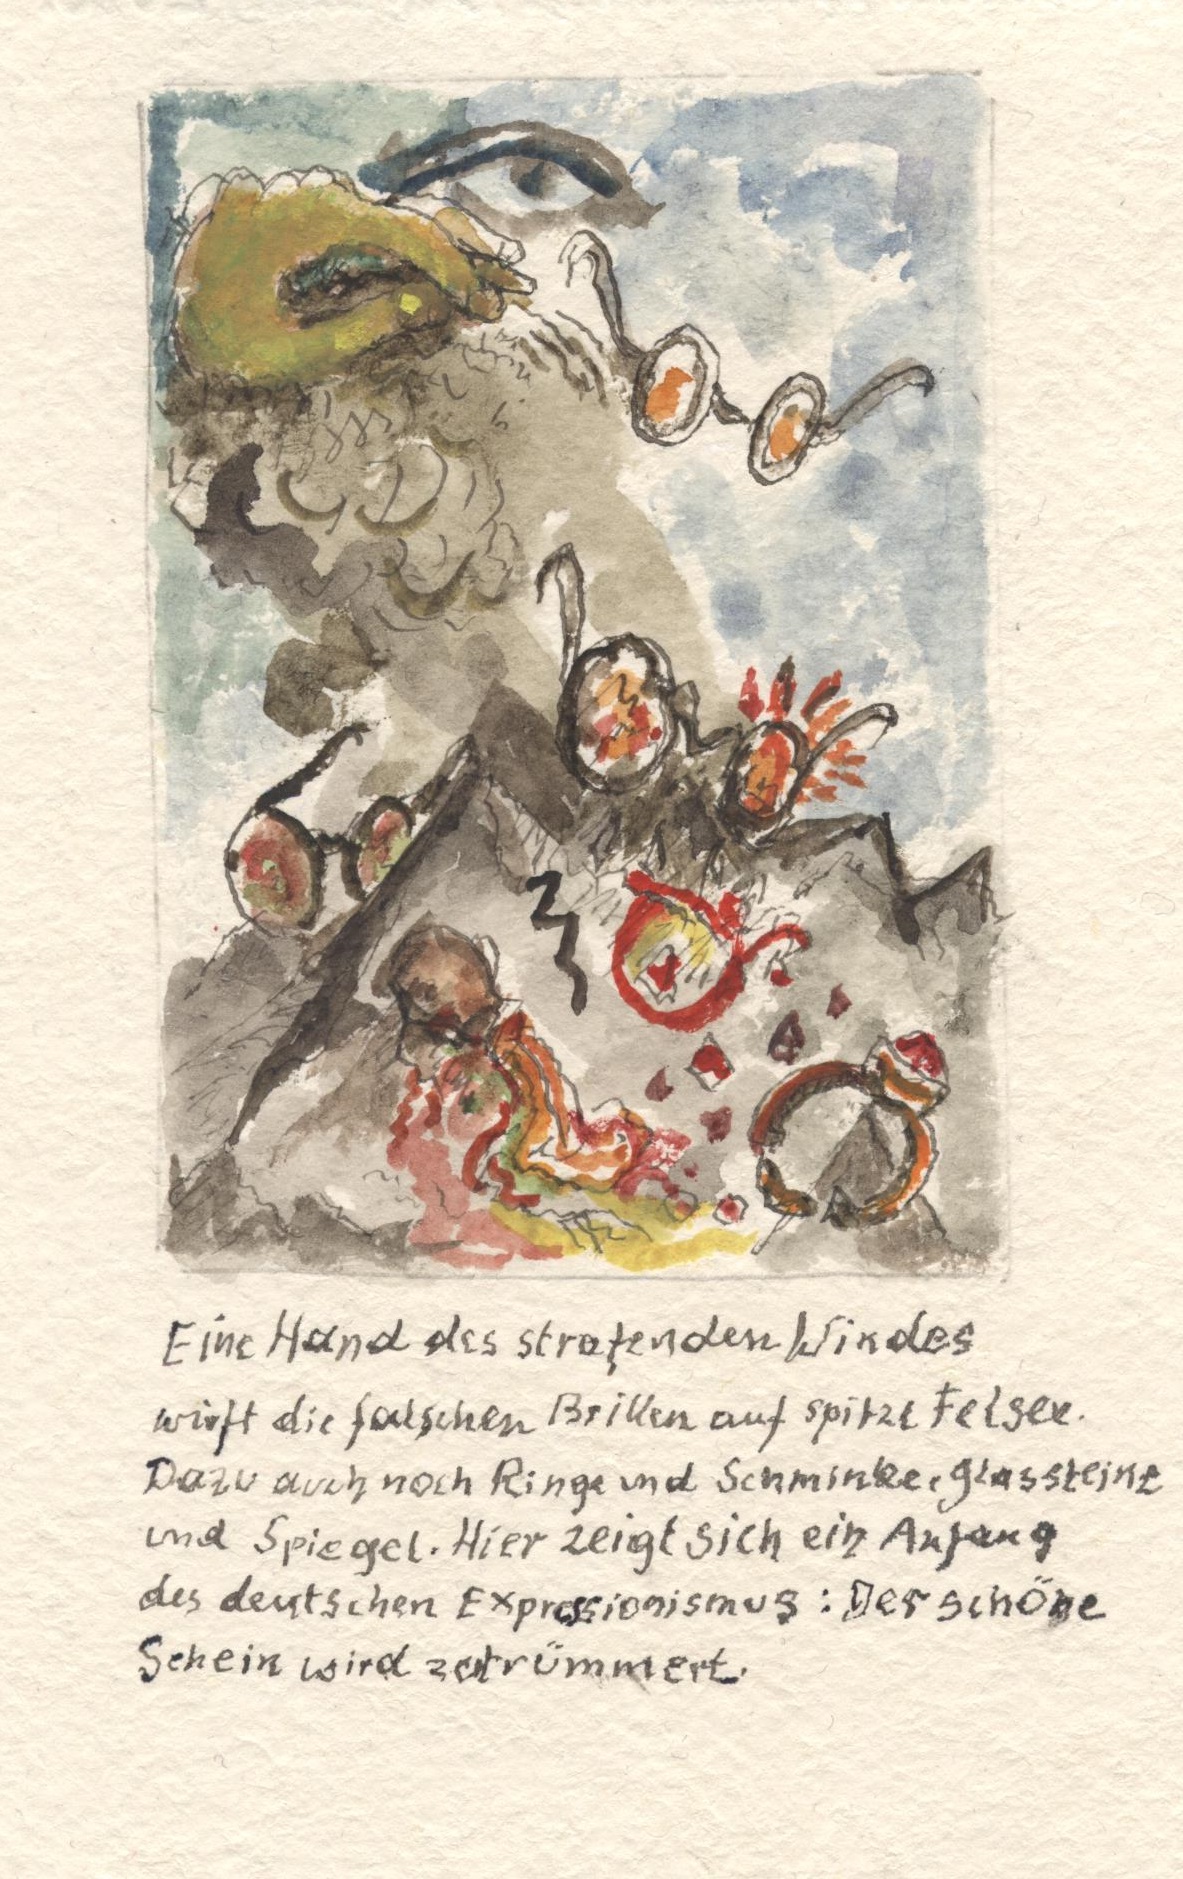 Eine Hand des strafenden Windes
wirft die falschen Brillen auf spitze Felsen.
Dazu auch noch Ringe und Schminke, Glassteine
und Spiegel. Hier zeigt sich ein Anfang
des deutschen Expressionismus: Der schöne
Schein wird zertrümmert.